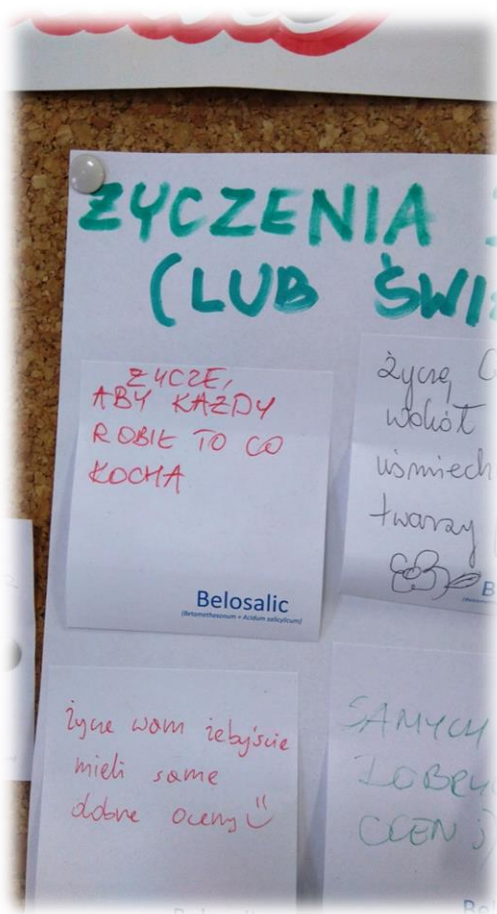 ŻYCZENIA
(LUB ŚWI
ŻYCZE,
ABY KAŻDY
ROBIŁ TO CO
KOCHA
Belosalic
(Betamethasonum + Acidum salicylicum)
życzę
wokół
uśmiech
twarzy
życzę wam żebyście
mieli same
dobre oceny
SAMYCH
DOBRY
OCEN